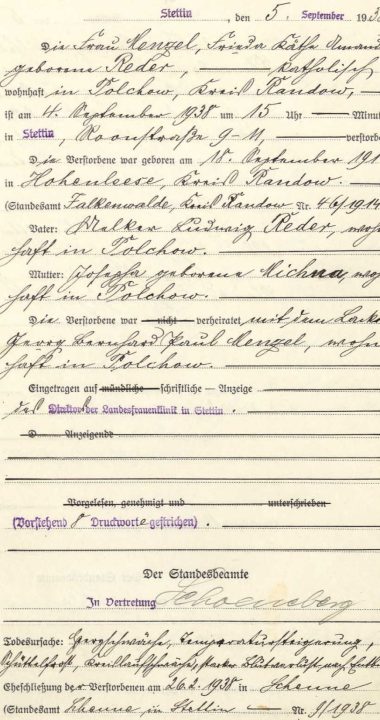 Stettin, den 5. September 193
Die Frau Mengel, Frieda Käthe Amand
geborene Reder, — katholisch
wohnhaft in Polchow, Kreis Randow,
ist am 4. September 1938 um 15 Uhr — Minut
in Stettin, Roonstraße 9-11, verstorbe
Die Verstorbene war geboren am 18. September 191
in Hohenleese, Kreis Randow.
(Standesamt Falkenwalde, Kreis Randow Nr. 46/1914
Vater: Melker Ludwig Reder, woh
haft in Polchow.
Mutter: Josepha geborene Michna, wo
haft in Polchow.
Die Verstorbene war — nicht — verheiratet, mit dem
Georg Bernhard Paul Mengel, wohn
haft in Polchow.
Eingetragen auf mündliche — schriftliche — Anzeige
des Direktors der Landesfrauenklinik in Stettin.
D Anzeigende
Vorgelesen, genehmigt und unterschrieben
(Vorstehend 8 Druckworte gestrichen).
Der Standesbeamte
In Vertretung Schoeneberg
Todesursache: Herzschwäche, Temperatursteigerung,
Schüttelfrost, Kreislaufschwäche, starker Blutverlust, nach
Eheschließung der Verstorbenen am 26.2.1938 in Scheune
(Standesamt Scheune in Stettin — Nr. 9/1938